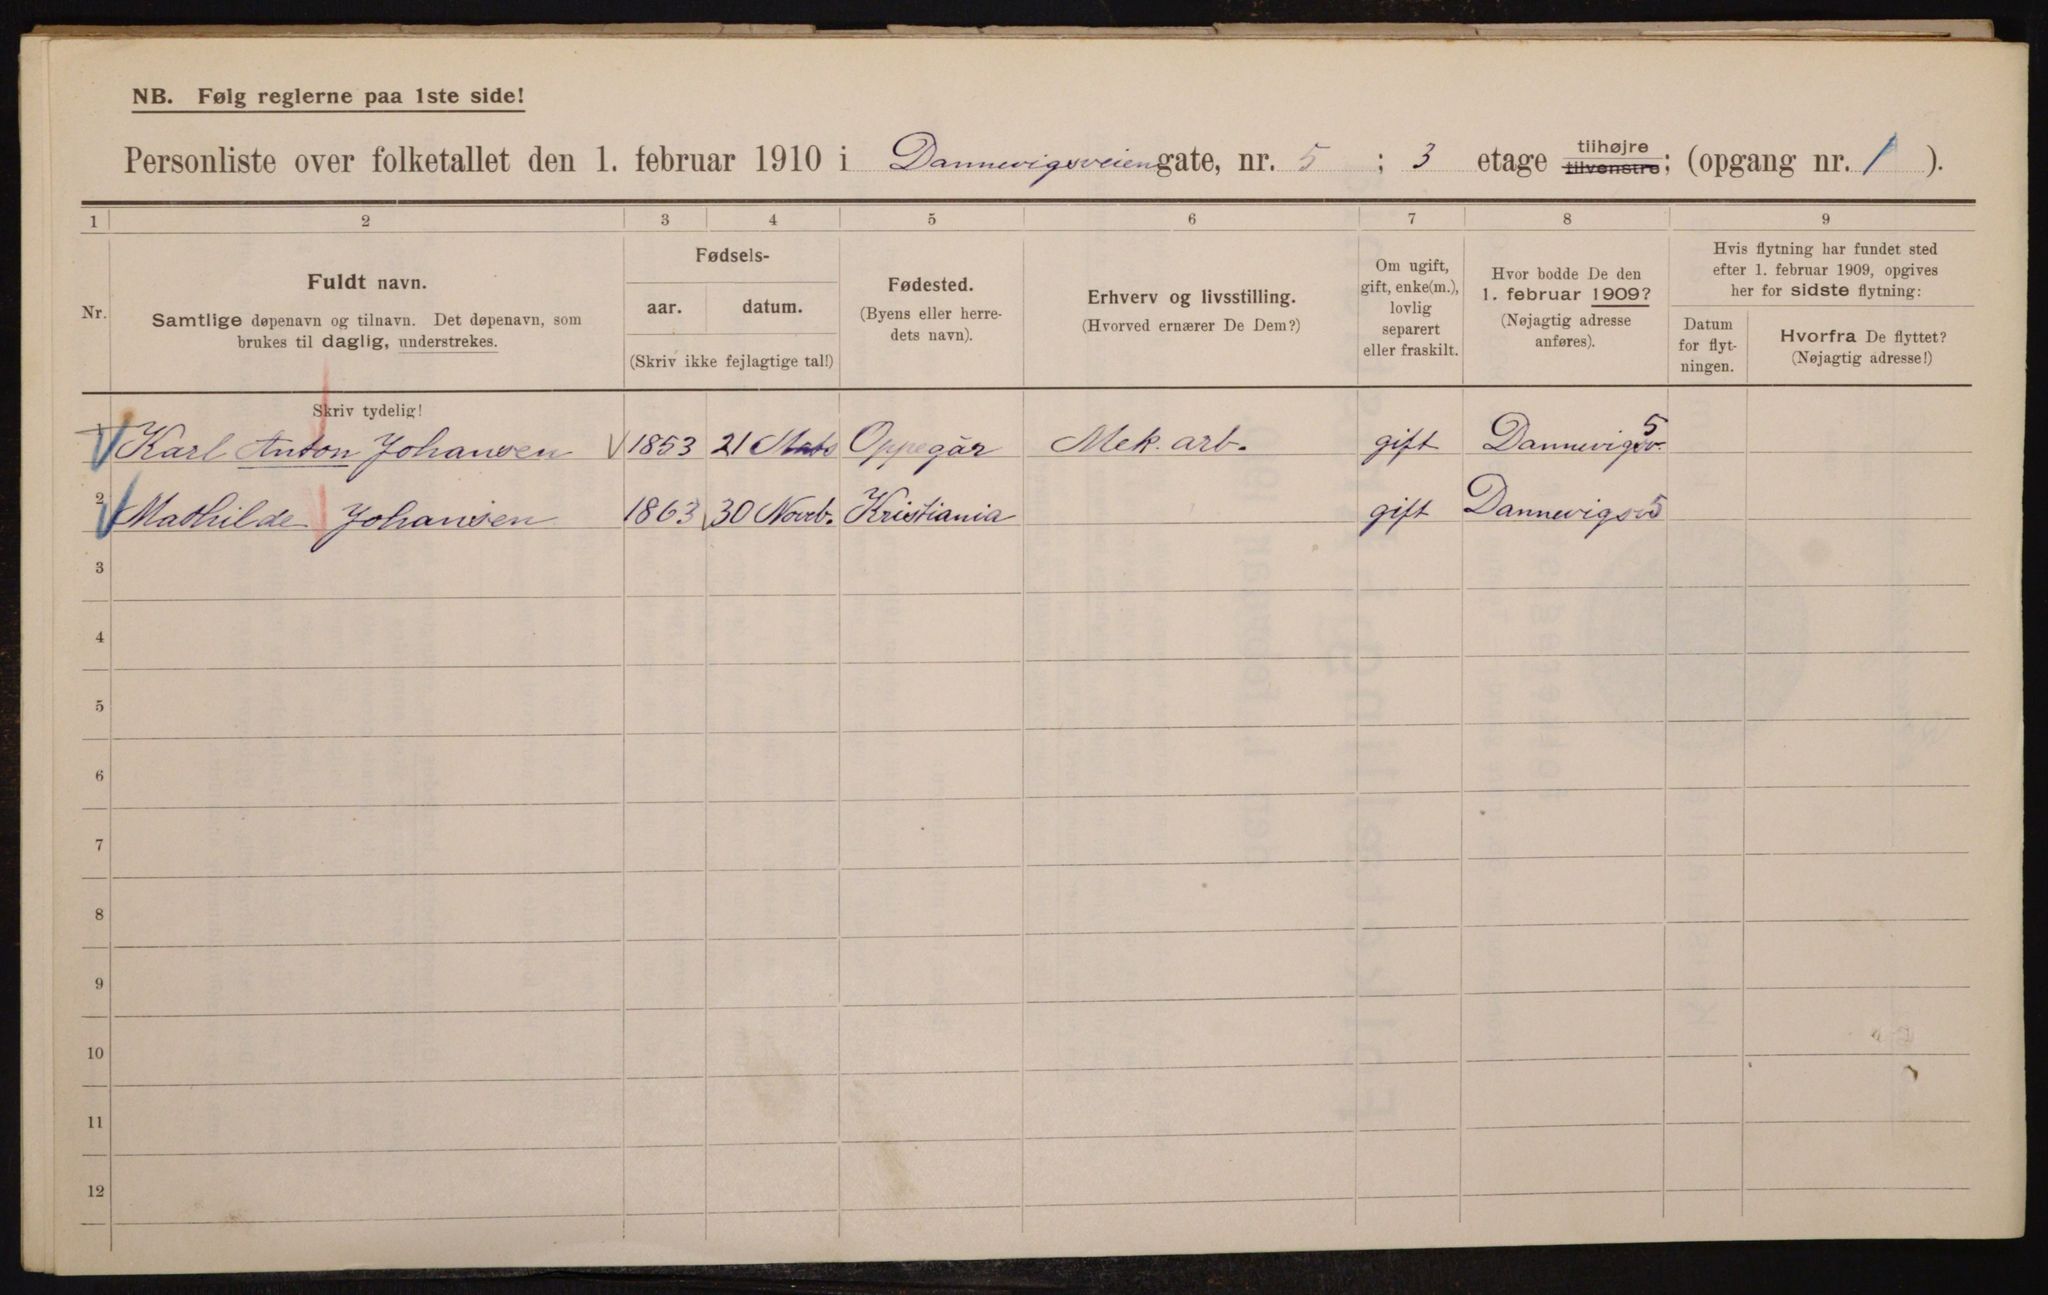 NB. Følg reglerne paa 1ste side!
Personliste over folketallet den 1. februar 1910 i Dannevigsveien gate, nr. 5 ; 3 etage tilhøjre tilvenstre; (opgang nr. 1 ).
1 2 3 4 5 6 7 8 9
Nr.
Fuldt navn.
Samtlige døpenavn og tilnavn. Det døpenavn, som
brukes til daglig, understrekes.
Fødsels-
aar. datum.
(Skriv ikke fejlagtige tal!)
Fødested.
(Byens eller herre-
dets navn).
Erhverv og livsstilling.
(Hvorved ernærer De Dem?)
Om ugift,
gift, enke(m.),
lovlig
separert
eller fraskilt.
Hvor bodde De den
1. februar 1909?
(Nøjagtig adresse
anføres).
Hvis flytning har fundet sted
efter 1. februar 1909, opgives
her for sidste flytning:
Datum
for flyt-
ningen.
Hvorfra De flyttet?
(Nøjagtig adresse!)
Skriv tydelig!
1 Karl Anton Johansen 1853 21 Oppegår Mek. arb. gift Dannevigsv. 5
2 Mathilde Johansen 1863 30 Novb. Kristiania gift Dannevigsv 5
3
4
5
6
7
8
9
10
11
12